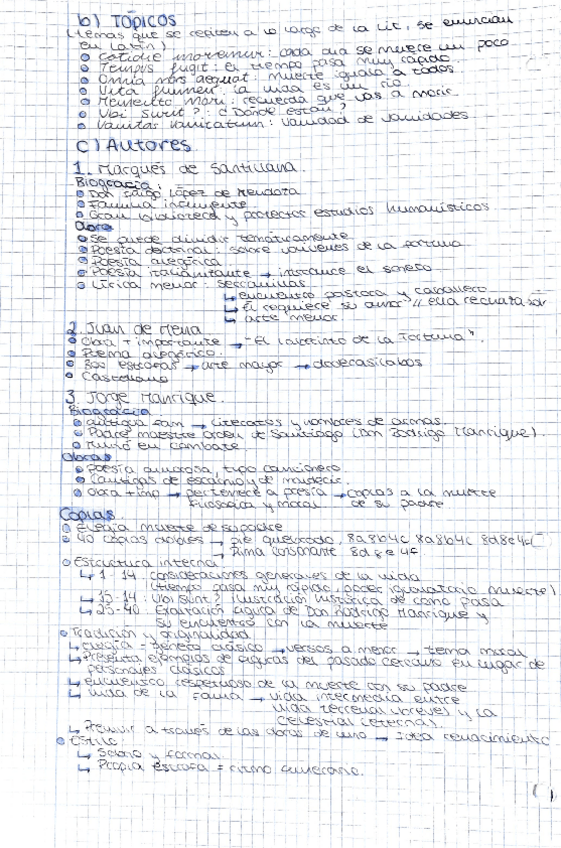 b) TÓPICOS
(temas que se repiten a lo largo de la lit, se enuncian
en latín)
Cotidie morremur: cada día se muere un poco
Tempus fugit: el tiempo pasa muy rápido.
Omnia mors aequat: muerte iguala a todos
Vita flumen: la vida es un río
Memento mori: recuerda que vas a morir
Ubi sunt?: ¿Dónde están?
Vanitas vanitatum: vanidad de vanidades
c) Autores.
1. Marqués de Santillana.
Biografía.
Don Iñigo López de Mendoza
Familia influyente
Gran biblioteca y protector estudios humanísticos
Obra
Se puede dividir temáticamente
Poesía doctrinal: sobre vaivenes de la fortuna
Poesía alegórica
Poesía italianizante → introduce el soneto
Lírica menor: serranillas
↳ encuentro pastora y caballero
↳ él requiere su amor // ella rechaza
↳ arte menor
2. Juan de Mena
Obra + importante → "El laberinto de la Fortuna".
Poema alegórico.
estrofas → arte mayor → dodecasílabos
Castellano
3. Jorge Manrique.
Biografía
antigua fam → literatos y hombres de armas.
Padre maestre orden de Santiago (Don Rodrigo Manrique).
Murió en combate.
Obras
Poesía amorosa, tipo cancionero
Cantigas de escarnio y de maldecir.
Obra + imp → pertenece a poesía → coplas a la muerte
filosófica y moral de su padre
Coplas
Elegía muerte de su padre
40 coplas dobles → pie quebrado, 8a8b4c 8a8b4c 8d8e4f
↳ Rima consonante 8d8e4f
Estructura interna:
↳ 1-14: consideraciones generales de la vida
(tiempo pasa muy rápido, poder igualatorio muerte)
↳ 15-24: Ubi sunt? ilustración histórica de como pasa
↳ 25-40: Exaltación figura de Don Rodrigo Manrique y
su encuentro con la muerte
Tradición y originalidad
↳ elegía = género clásico → versos a menor → tema moral
↳ Presenta ejemplos de figuras del pasado cercano en lugar de
personajes clásicos
↳ encuentro respetuoso de la muerte con su padre
↳ vida de la Fama → vida intermedia entre
vida terrenal (breve) y la
celestial (eterna).
↳ Pervivir a través de las obras de uno → idea renacimiento
Estilo:
↳ Sobrio y formal
↳ Propia estrofa = ritmo funerario.